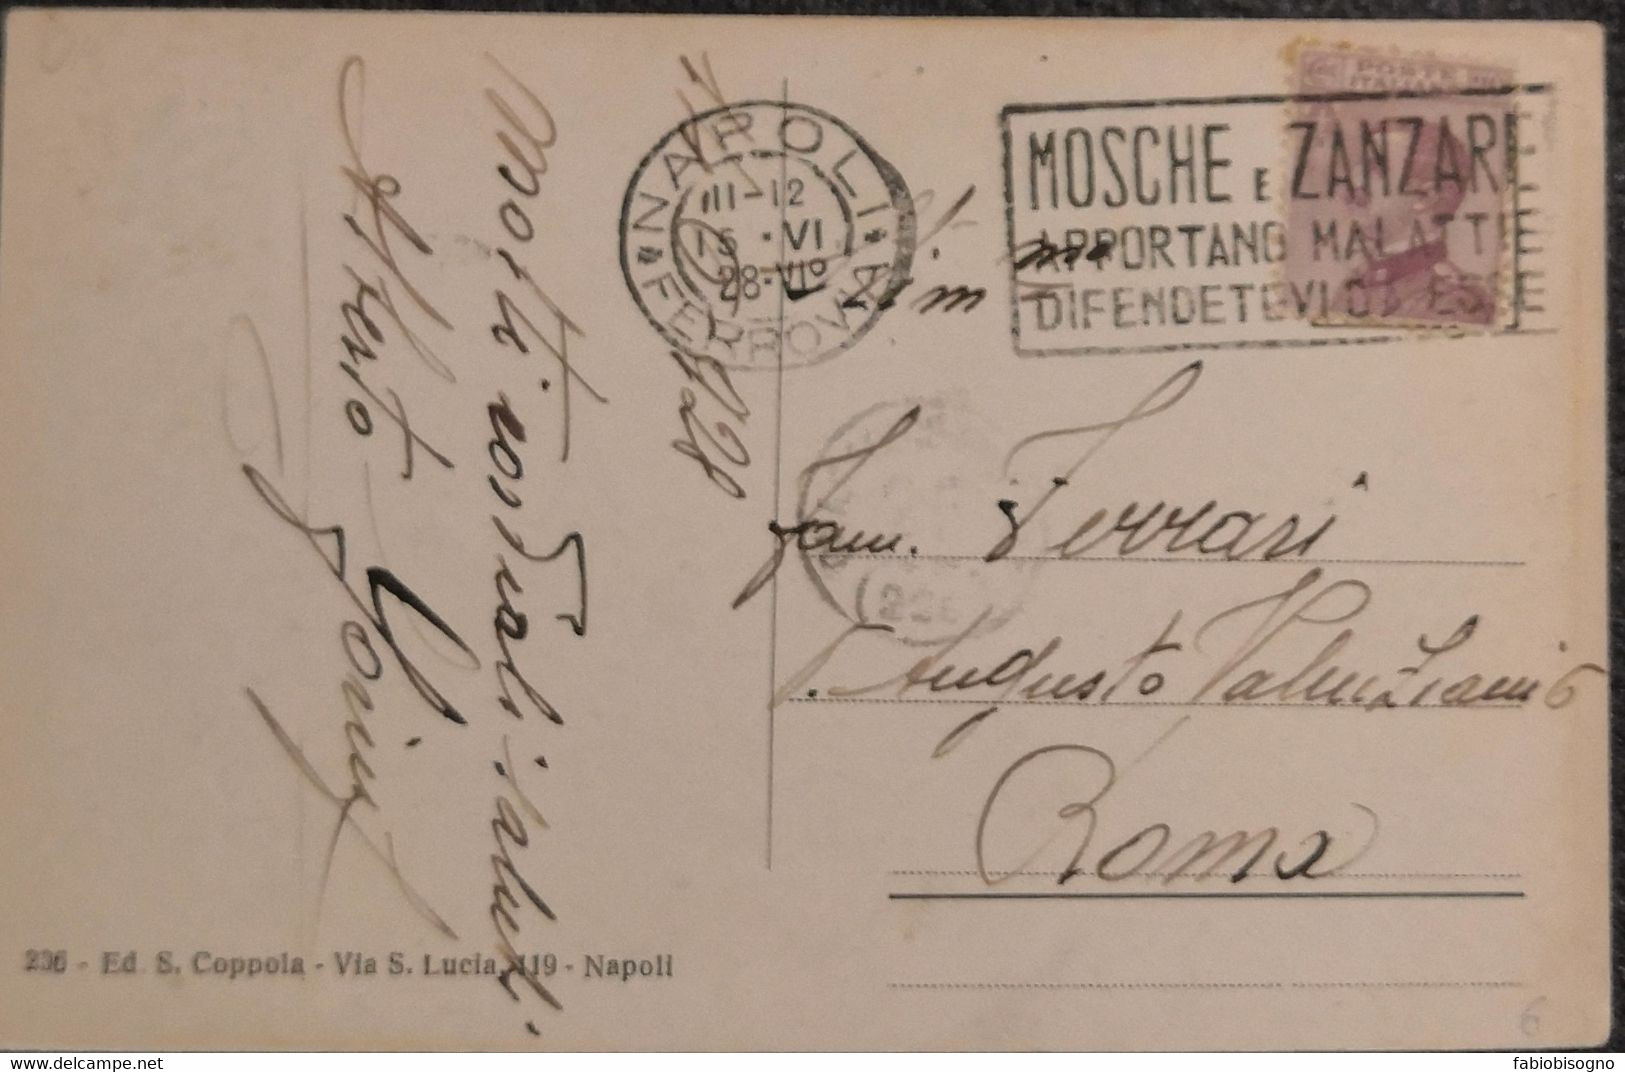 NAPOLI
11-12
15·VI
28·VIº
FERROVIA
MOSCHE E ZANZARE
APPORTANO MALATTIE
DIFENDETEVI DA ESSE
POSTE
ITALIANE
1928
Fam. Ferrari
V. Augusto Valenziani 6
Roma
Mostri cordiali saluti
Alberto
236 - Ed. S. Coppola - Via S. Lucia, 119 - Napoli
6
www.delcampe.net
fabiobisogno